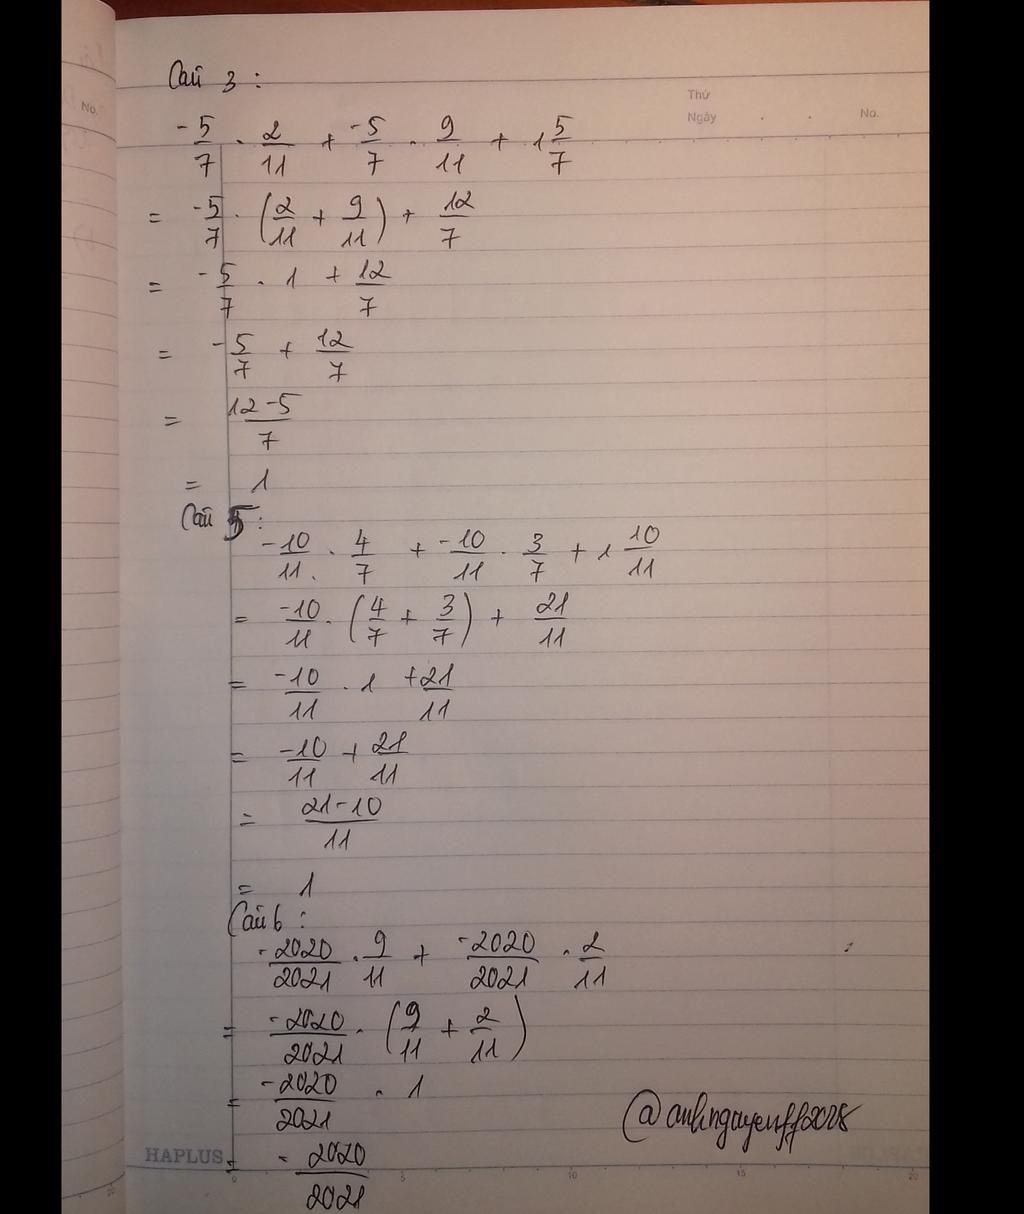 No.
Thứ
Ngày . . No.
Câu 3 :
-5/7 . 2/11 + -5/7 . 9/11 + 1 5/7
= -5/7 . (2/11 + 9/11) + 12/7
= -5/7 . 1 + 12/7
= -5/7 + 12/7
= 12-5/7
= 1
Câu 5 :
-10/11 . 4/7 + -10/11 . 3/7 + 1 10/11
= -10/11 . (4/7 + 3/7) + 21/11
= -10/11 . 1 + 21/11
= -10/11 + 21/11
= 21-10/11
= 1
Câu 6 :
-2020/2021 . 9/11 + -2020/2021 . 2/11
= -2020/2021 . (9/11 + 2/11)
= -2020/2021 . 1
= -2020/2021
HAPLUS
0 5 10 15 20